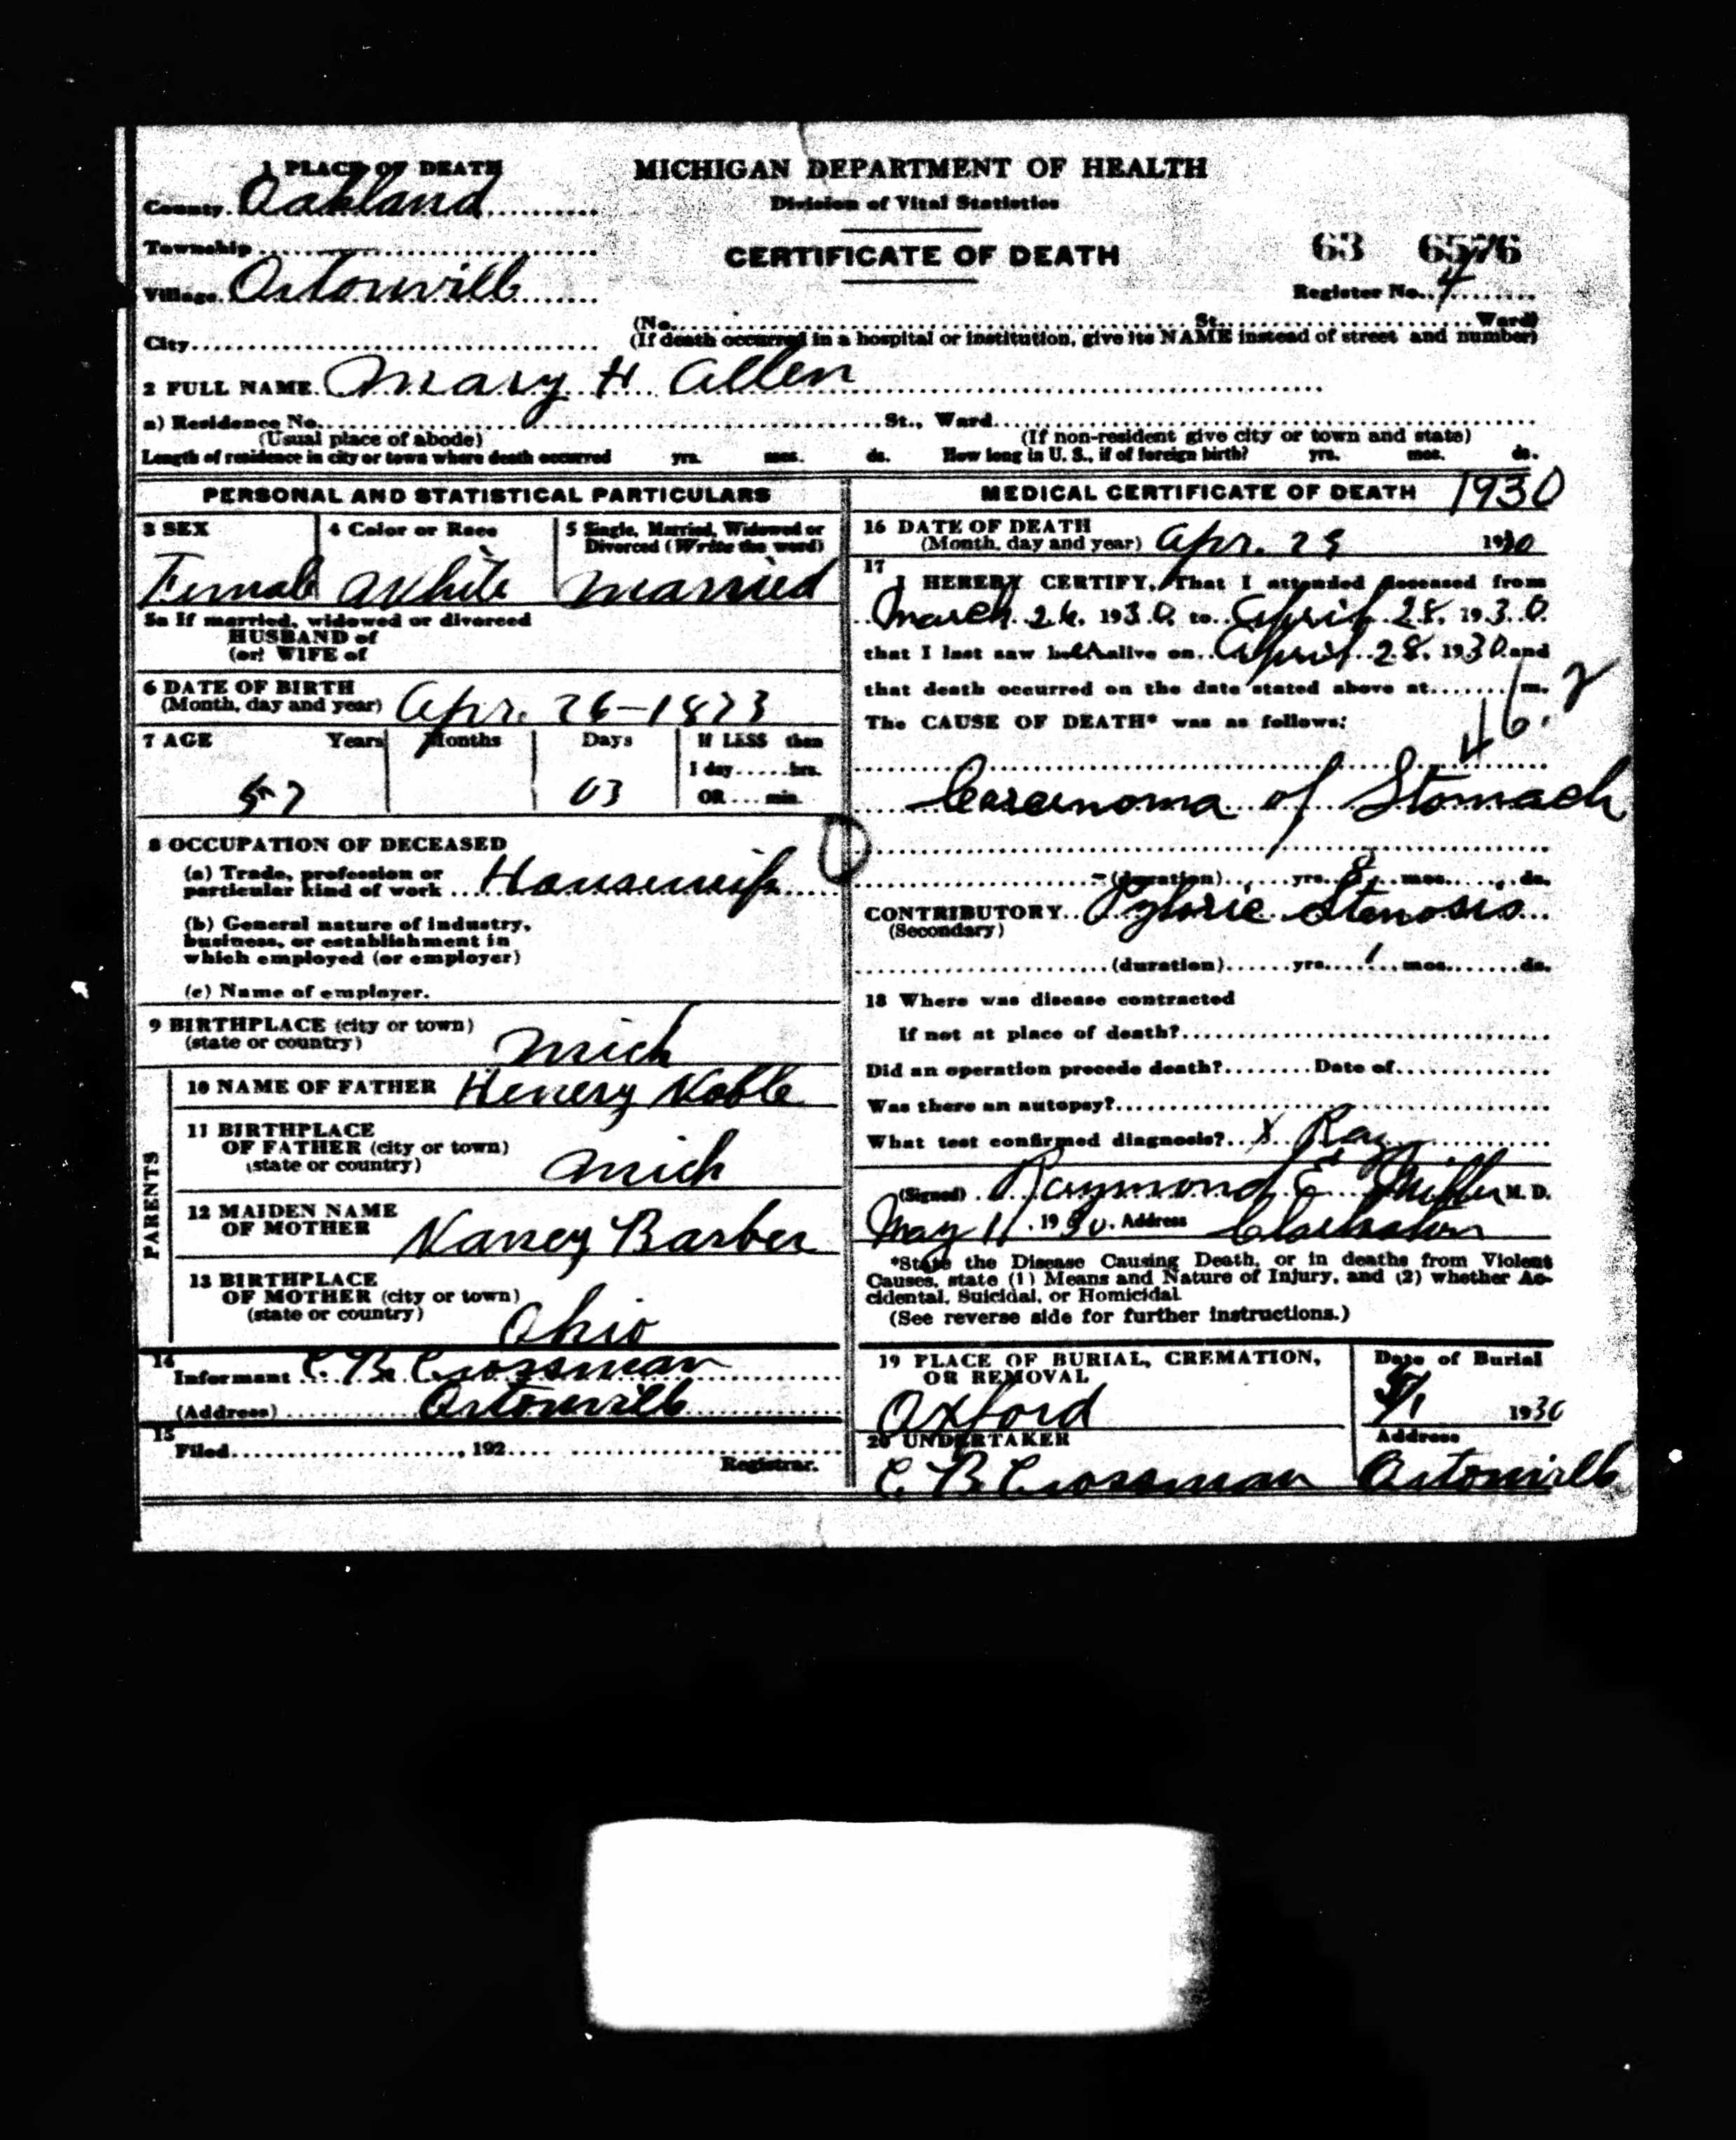 1 PLACE OF DEATH
MICHIGAN DEPARTMENT OF HEALTH
Division of Vital Statistics
CERTIFICATE OF DEATH
63 6576
Register No. 4
County Oakland
Township
Village Ortonville
City
(No. St. Ward)
(If death occurred in a hospital or institution, give its NAME instead of street and number)
2 FULL NAME Mary H Allen
a) Residence No. St., Ward
(Usual place of abode) (If non-resident give city or town and state)
Length of residence in city or town where death occurred yrs. mos. ds. How long in U. S., if of foreign birth? yrs. mos. ds.
PERSONAL AND STATISTICAL PARTICULARS
3 SEX
Female
4 Color or Race
White
5 Single, Married, Widowed or
Divorced (Write the word)
Married
5a If married, widowed or divorced
HUSBAND of
(or) WIFE of
6 DATE OF BIRTH
(Month, day and year) Apr. 26-1873
7 AGE Years Months Days If LESS than
1 day hrs.
OR min.
57 03
8 OCCUPATION OF DECEASED
(a) Trade, profession or
particular kind of work Housewife
(b) General nature of industry,
business, or establishment in
which employed (or employer)
(c) Name of employer.
9 BIRTHPLACE (city or town)
(state or country) Mich
PARENTS
10 NAME OF FATHER Henery Noble
11 BIRTHPLACE
OF FATHER (city or town)
(state or country) Mich
12 MAIDEN NAME
OF MOTHER Nancy Barber
13 BIRTHPLACE
OF MOTHER (city or town)
(state or country) Ohio
14
Informant C. B. Crossman
(Address) Ortonville
15
Filed , 192
Registrar.
MEDICAL CERTIFICATE OF DEATH 1930
16 DATE OF DEATH
(Month, day and year) Apr. 29 1930
17
I HEREBY CERTIFY, That I attended deceased from
March 26, 1930, to April 28, 1930
that I last saw her alive on April 28, 1930 and
that death occurred on the date stated above at m.
The CAUSE OF DEATH* was as follows:
46.
Carcinoma of Stomach
(duration) yrs. 8 mos. ds.
CONTRIBUTORY Pyloric Stenosis
(Secondary)
(duration) yrs. 1 mos. ds.
18 Where was disease contracted
If not at place of death?
Did an operation precede death? Date of
Was there an autopsy?
What test confirmed diagnosis? X Ray
(Signed) Raymond E Miller M. D.
May 11, 1930. Address Clarkston
*State the Disease Causing Death, or in deaths from Violent
Causes, state (1) Means and Nature of Injury, and (2) whether Ac-
cidental, Suicidal, or Homicidal
(See reverse side for further instructions.)
19 PLACE OF BURIAL, CREMATION,
OR REMOVAL
Oxford
Date of Burial
5/1 1930
20 UNDERTAKER
C B Crossman
Address
Ortonville